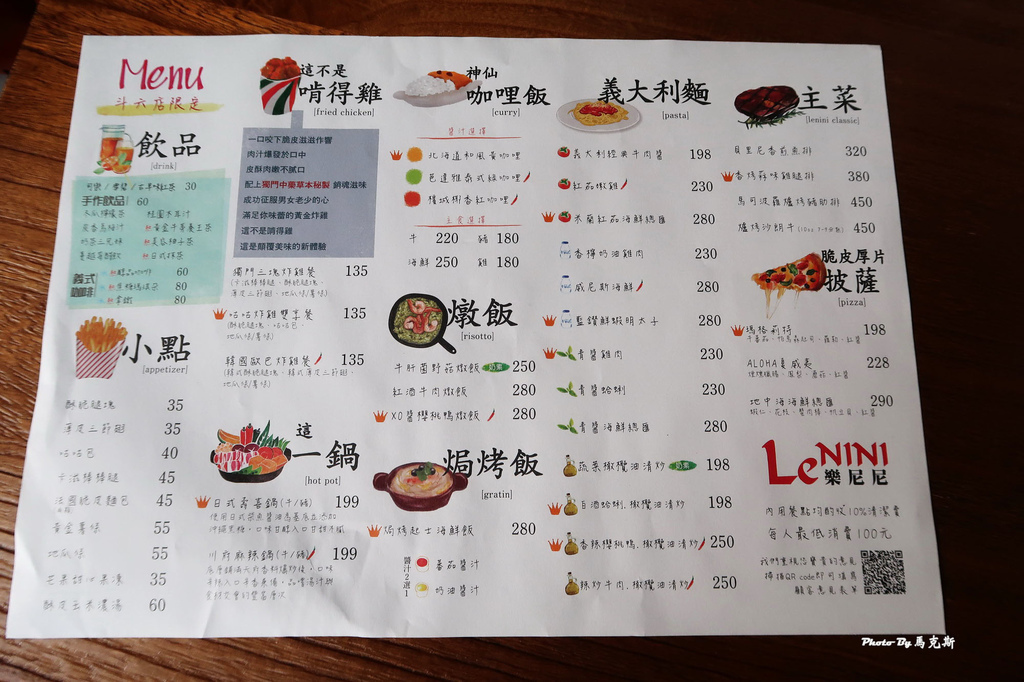 Menu
斗六店限定
飲品
[drink]
可樂/雪碧/古早味紅茶 30
手作飲品 60
義式咖啡
60
80
80
小點
[appetizer]
酥脆腿塊 35
薄皮三節翅 35
咕咕包 40
卡滋棒棒腿 45
法國脆皮麵包 45
黃金薯條 55
地瓜條 55
芒果甜心果凍 35
酥皮玉米濃湯 60
這不是
啃得雞
[fried chicken]
一口咬下脆皮滋滋作響
肉汁爆發於口中
皮酥肉嫩不膩口
配上獨門中藥草本秘製 銷魂滋味
成功征服男女老少的心
滿足你味蕾的黃金炸雞
這不是啃得雞
這是顛覆美味的新體驗
獨門三塊炸雞餐 135
(卡滋棒棒腿、酥脆腿塊、
薄皮三節翅、地瓜條/薯條)
咕咕炸雞雙享餐 135
(酥脆腿塊、咕咕包、
地瓜條/薯條)
韓國歐巴炸雞餐 135
(韓式酥脆腿塊、韓式薄皮三節翅、
地瓜條/薯條)
這
一鍋
[hot pot]
日式壽喜鍋(牛/豬) 199
川府麻辣鍋(牛/豬) 199
神仙
咖哩飯
[curry]
醬汁選擇
北海道和風黃咖哩
芭達雅泰式綠咖哩
檳城椰香紅咖哩
主食選擇
牛 220 豬 180
海鮮 250 雞 180
燉飯
[risotto]
牛肝菌野菇燉飯 奶素 250
紅酒牛肉燉飯 280
XO醬櫻桃鴨燉飯 280
焗烤飯
[gratin]
焗烤起士海鮮飯 280
醬汁2選1
番茄醬汁
奶油醬汁
義大利麵
[pasta]
義大利經典牛肉醬 198
紅茄嫩雞 230
米蘭紅茄海鮮總匯 280
香檸奶油雞肉 230
威尼斯海鮮 280
藍鑽鮮蝦明太子 280
青醬雞肉 230
青醬蛤蜊 230
青醬海鮮總匯 280
蔬菜橄欖油清炒 奶素 198
白酒蛤蜊.橄欖油清炒 198
香辣櫻桃鴨.橄欖油清炒 250
辣炒牛肉.橄欖油清炒 250
主菜
[lenini classic]
貝里尼香煎魚排 320
香烤蒜味雞腿排 380
馬可波羅爐烤豬肋排 450
爐烤沙朗牛 450
脆皮厚片
披薩
[pizza]
瑪格莉特 198
ALOHA夏威夷 228
地中海海鮮總匯 290
LeNINI
樂尼尼
內用餐點均酌收10%清潔費
每人最低消費100元
我們重視您寶貴的意見
掃描QR code即可填寫
顧客意見表單
Photo By 馬克斯